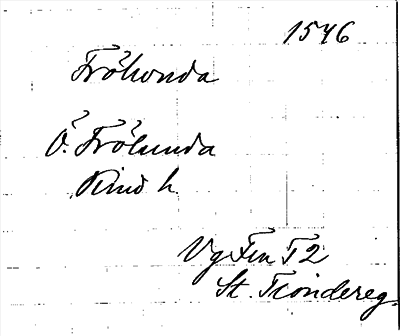 1546
Fröhonda
Ö. Frölunda
Kind h.
Vg Fru T 2
St. Tiondereg.